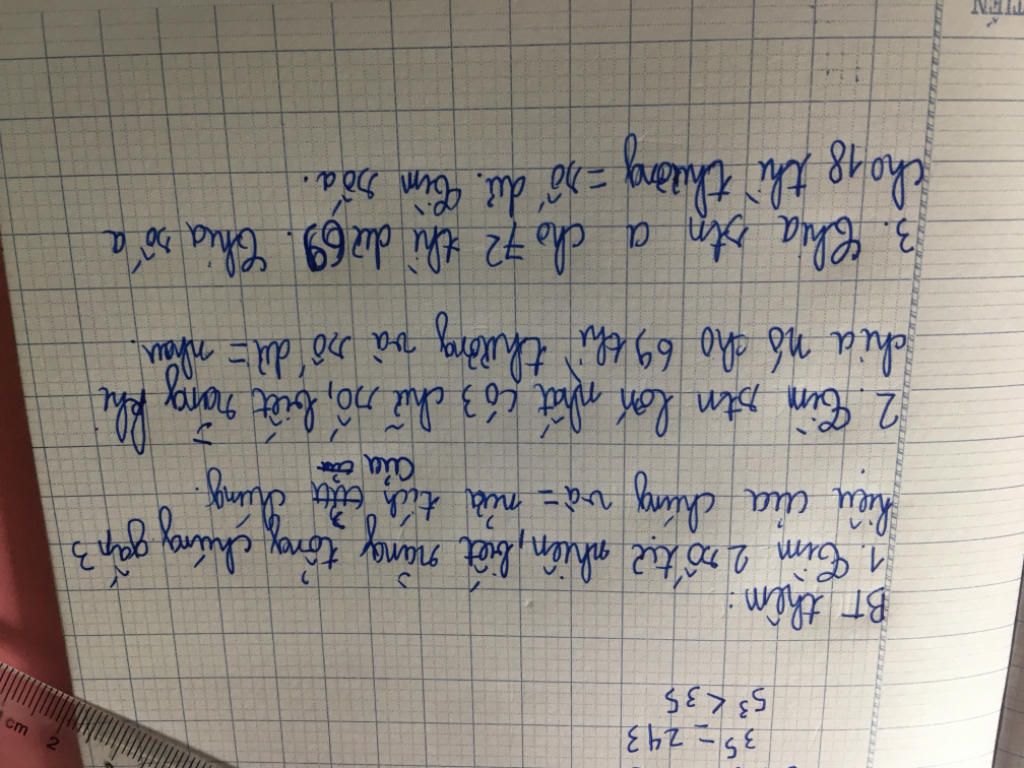 3⁵ = 243
5³ < 3⁵
BT thêm:
1. Tìm 2 số tự nhiên, biết rằng tổng chúng gấp 3
hiệu của chúng và = nửa tích của chúng.
2. Tìm stn lớn nhất có 3 chữ số, biết rằng khi
chia nó cho 69 thì thương và số dư = nhau.
3. Chia stn a cho 72 thì dư 69. Chia số a
cho 18 thì thương = số dư. Tìm số a.